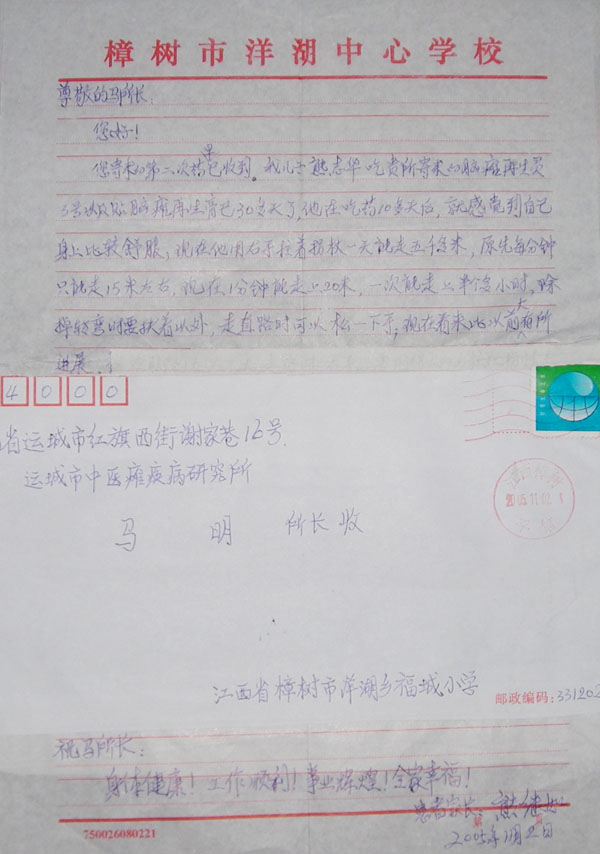 樟树市洋湖中心学校
尊敬的马所长:
您好!
您寄来的第二次药已收到。我儿子熊志华吃贵所寄来的脑瘫再生丹
3号以及贴脑瘫再生膏已30多天了,他在吃药10多天后,就感觉到自己
身上比较舒服,现在他用右手拄着拐杖一天能走五千多米,原先每分钟
只能走15米左右,现在1分钟能走上20米,一次能走上半个多小时,除
掉转弯时要扶着以外,走直路时可以松一下手,现在看来比以前大有所
进展。
4000
省运城市红旗西街谢家巷16号
运城市中医瘫痪病研究所
马 明 所长收
2005.11.02
江西省樟树市洋湖乡福城小学
邮政编码:331202
祝马所长:
身体健康!工作顺利!事业辉煌!全家幸福!
患者家长:熊继
2005年 月 日
750026080221